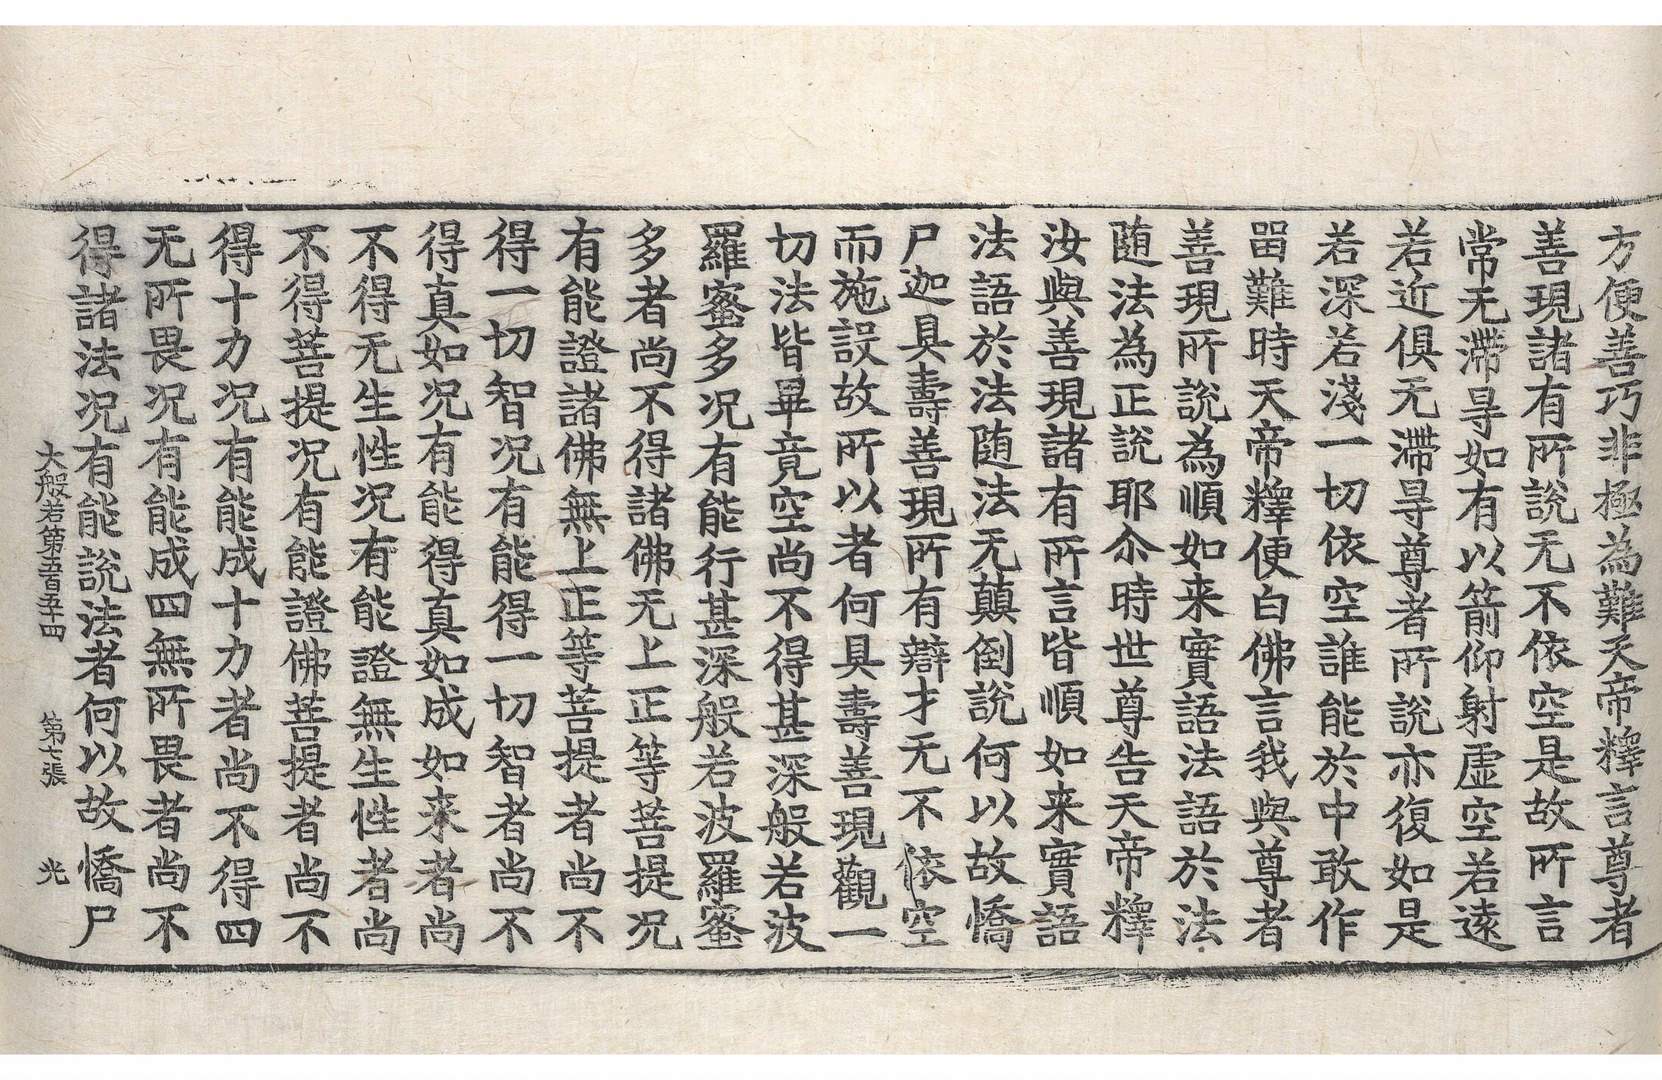 方便善巧非極為難天帝釋言尊者
善現諸有所說无不依空是故所言
常无滯㝵如有以箭仰射虛空若遠
若近俱无滯㝵尊者所說亦復如是
若深若淺一切依空誰能於中敢作
留難時天帝釋便白佛言我與尊者
善現所說為順如来實語法語於法
随法為正說耶尒時世尊告天帝釋
汝與善現諸有所言皆順如来實語
法語於法随法无顛倒說何以故憍
尸迦具壽善現所有辯才无不依空
而施設故所以者何具壽善現觀一
切法皆畢竟空尚不得甚深般若波
羅蜜多況有能行甚深般若波羅蜜
多者尚不得諸佛无上正等菩提況
有能證諸佛無上正等菩提者尚不
得一切智況有能得一切智者尚不
得真如況有能得真如成如来者尚
不得无生性況有能證無生性者尚
不得菩提況有能證佛菩提者尚不
得十力況有能成十力者尚不得四
无所畏況有能成四無所畏者尚不
得諸法況有能說法者何以故憍尸
大般若第五百五十四 第七張 光